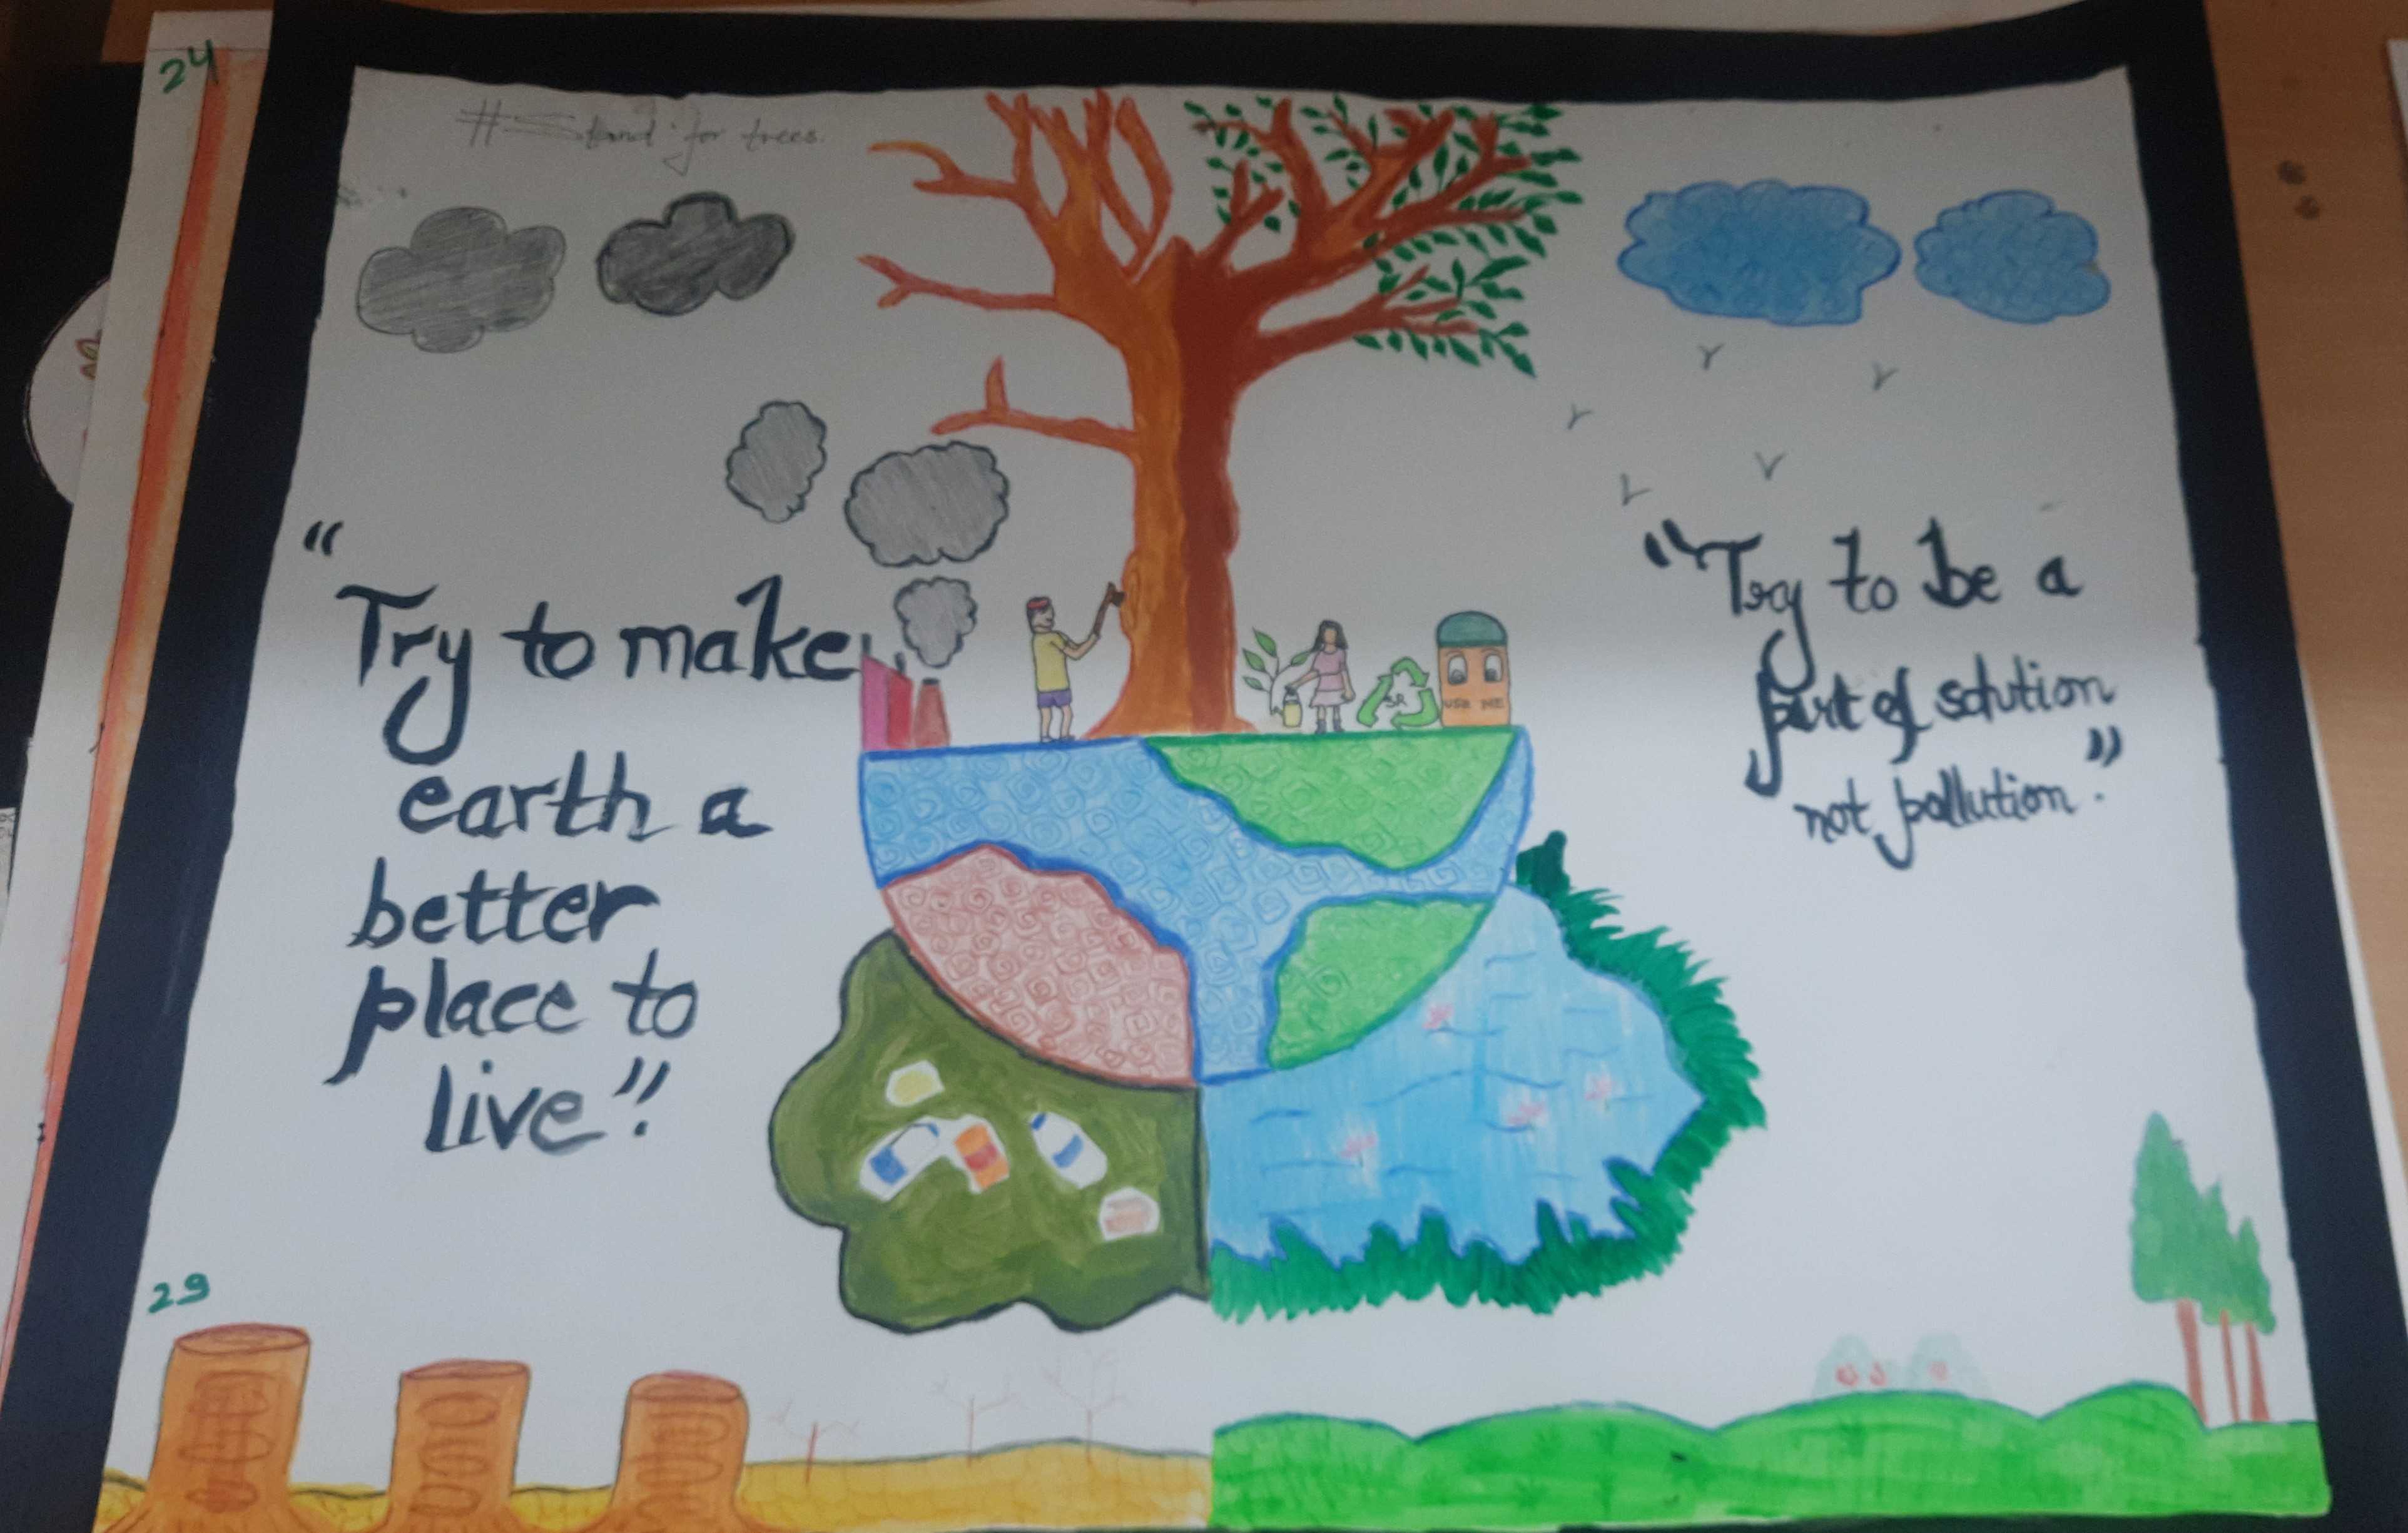 24
#Stand for trees.
"Try to make
earth a
better
place to
live".
"Try to be a
part of solution
not pollution".
5R
USE ME
29